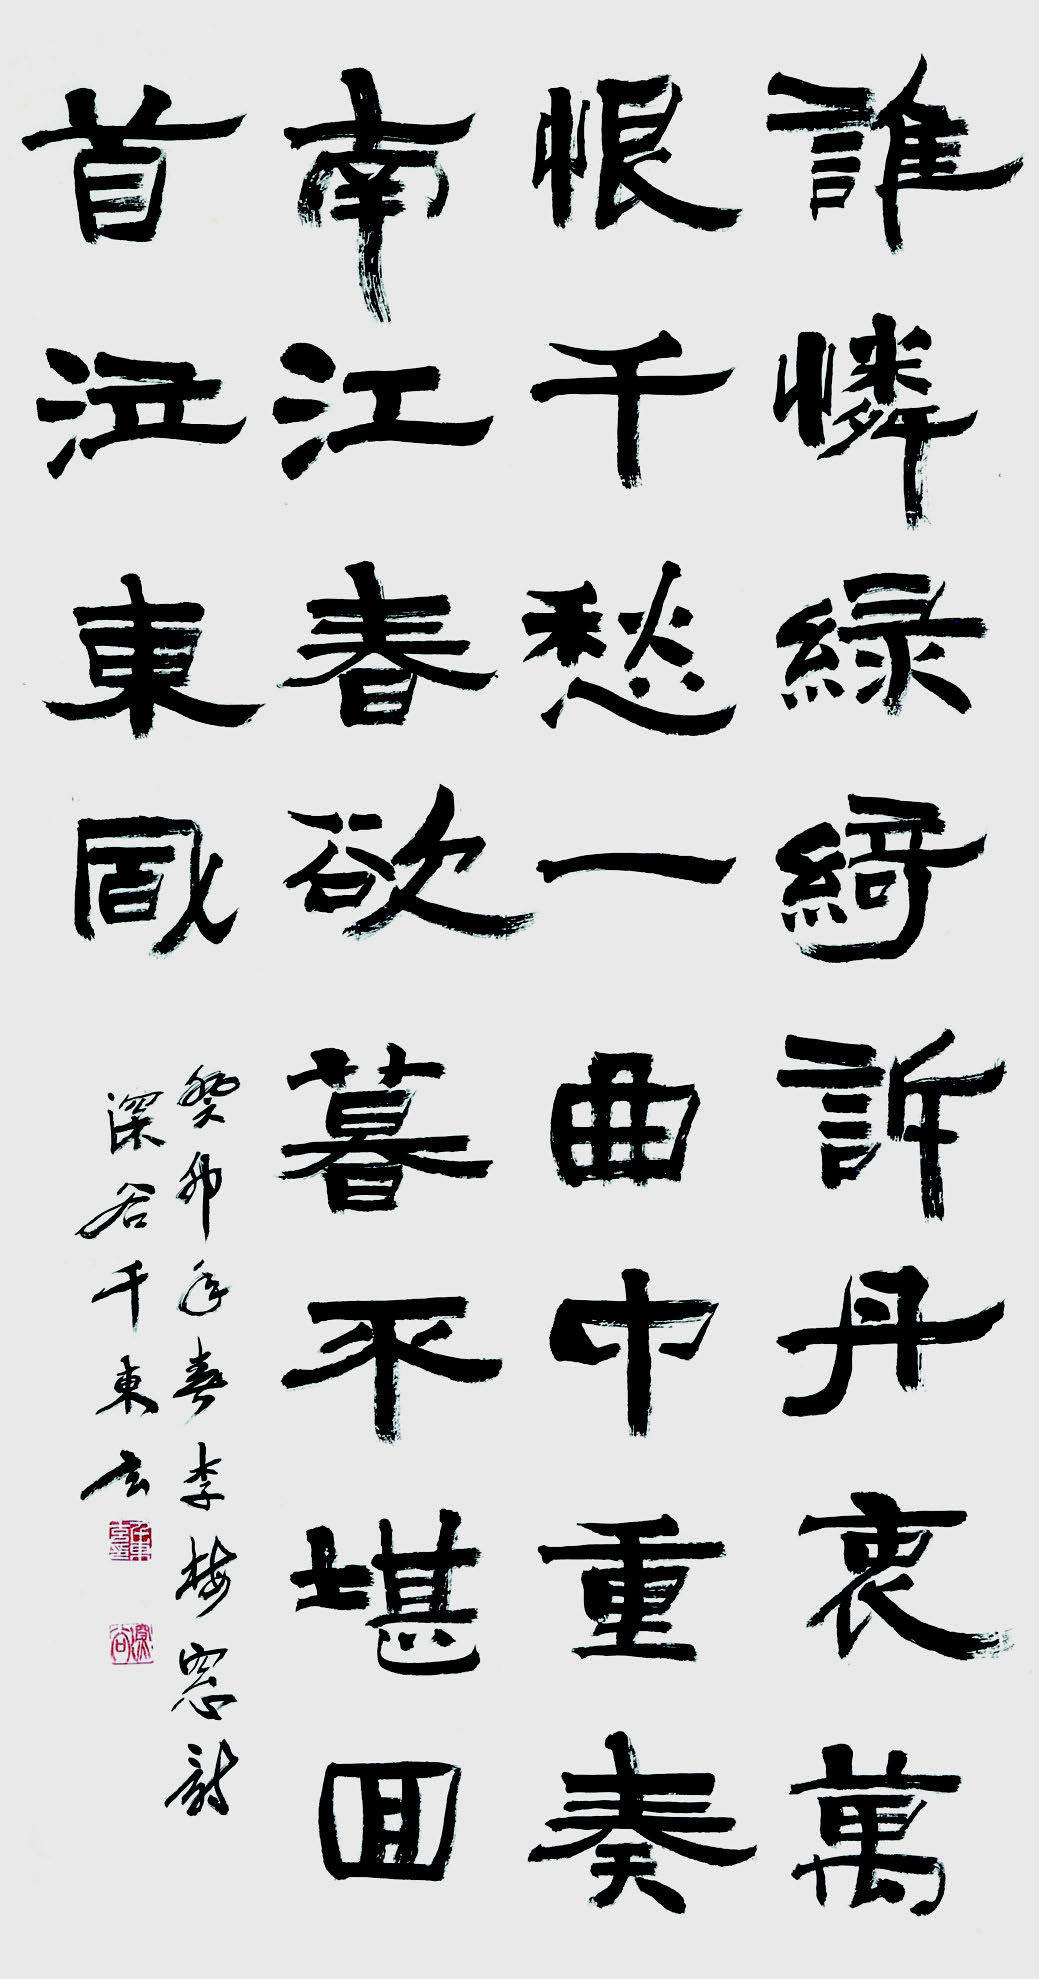 誰憐綠綺訴丹衷萬
恨千愁一曲中重奏
南江春欲暮平堪回
首泣東風
癸卯年春李梅窓詩
深谷千東玄
深谷